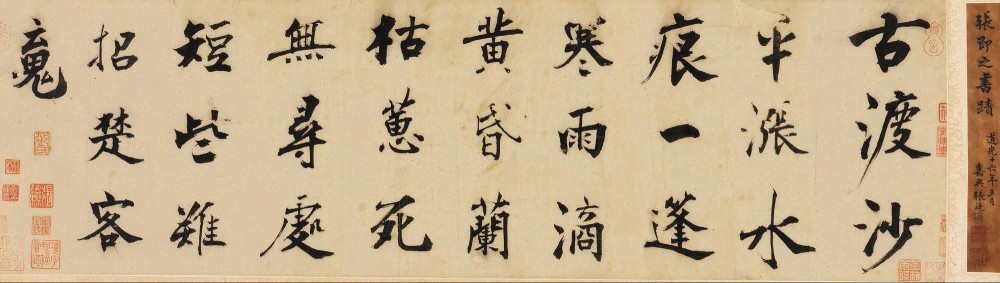 張即之書蹟
道光十六年五月
嘉興張廷濟
古渡沙
平漲水
痕一蓬
寒雨滴
黄昏蘭
枯蕙死
無尋處
短些難
招楚客
魂